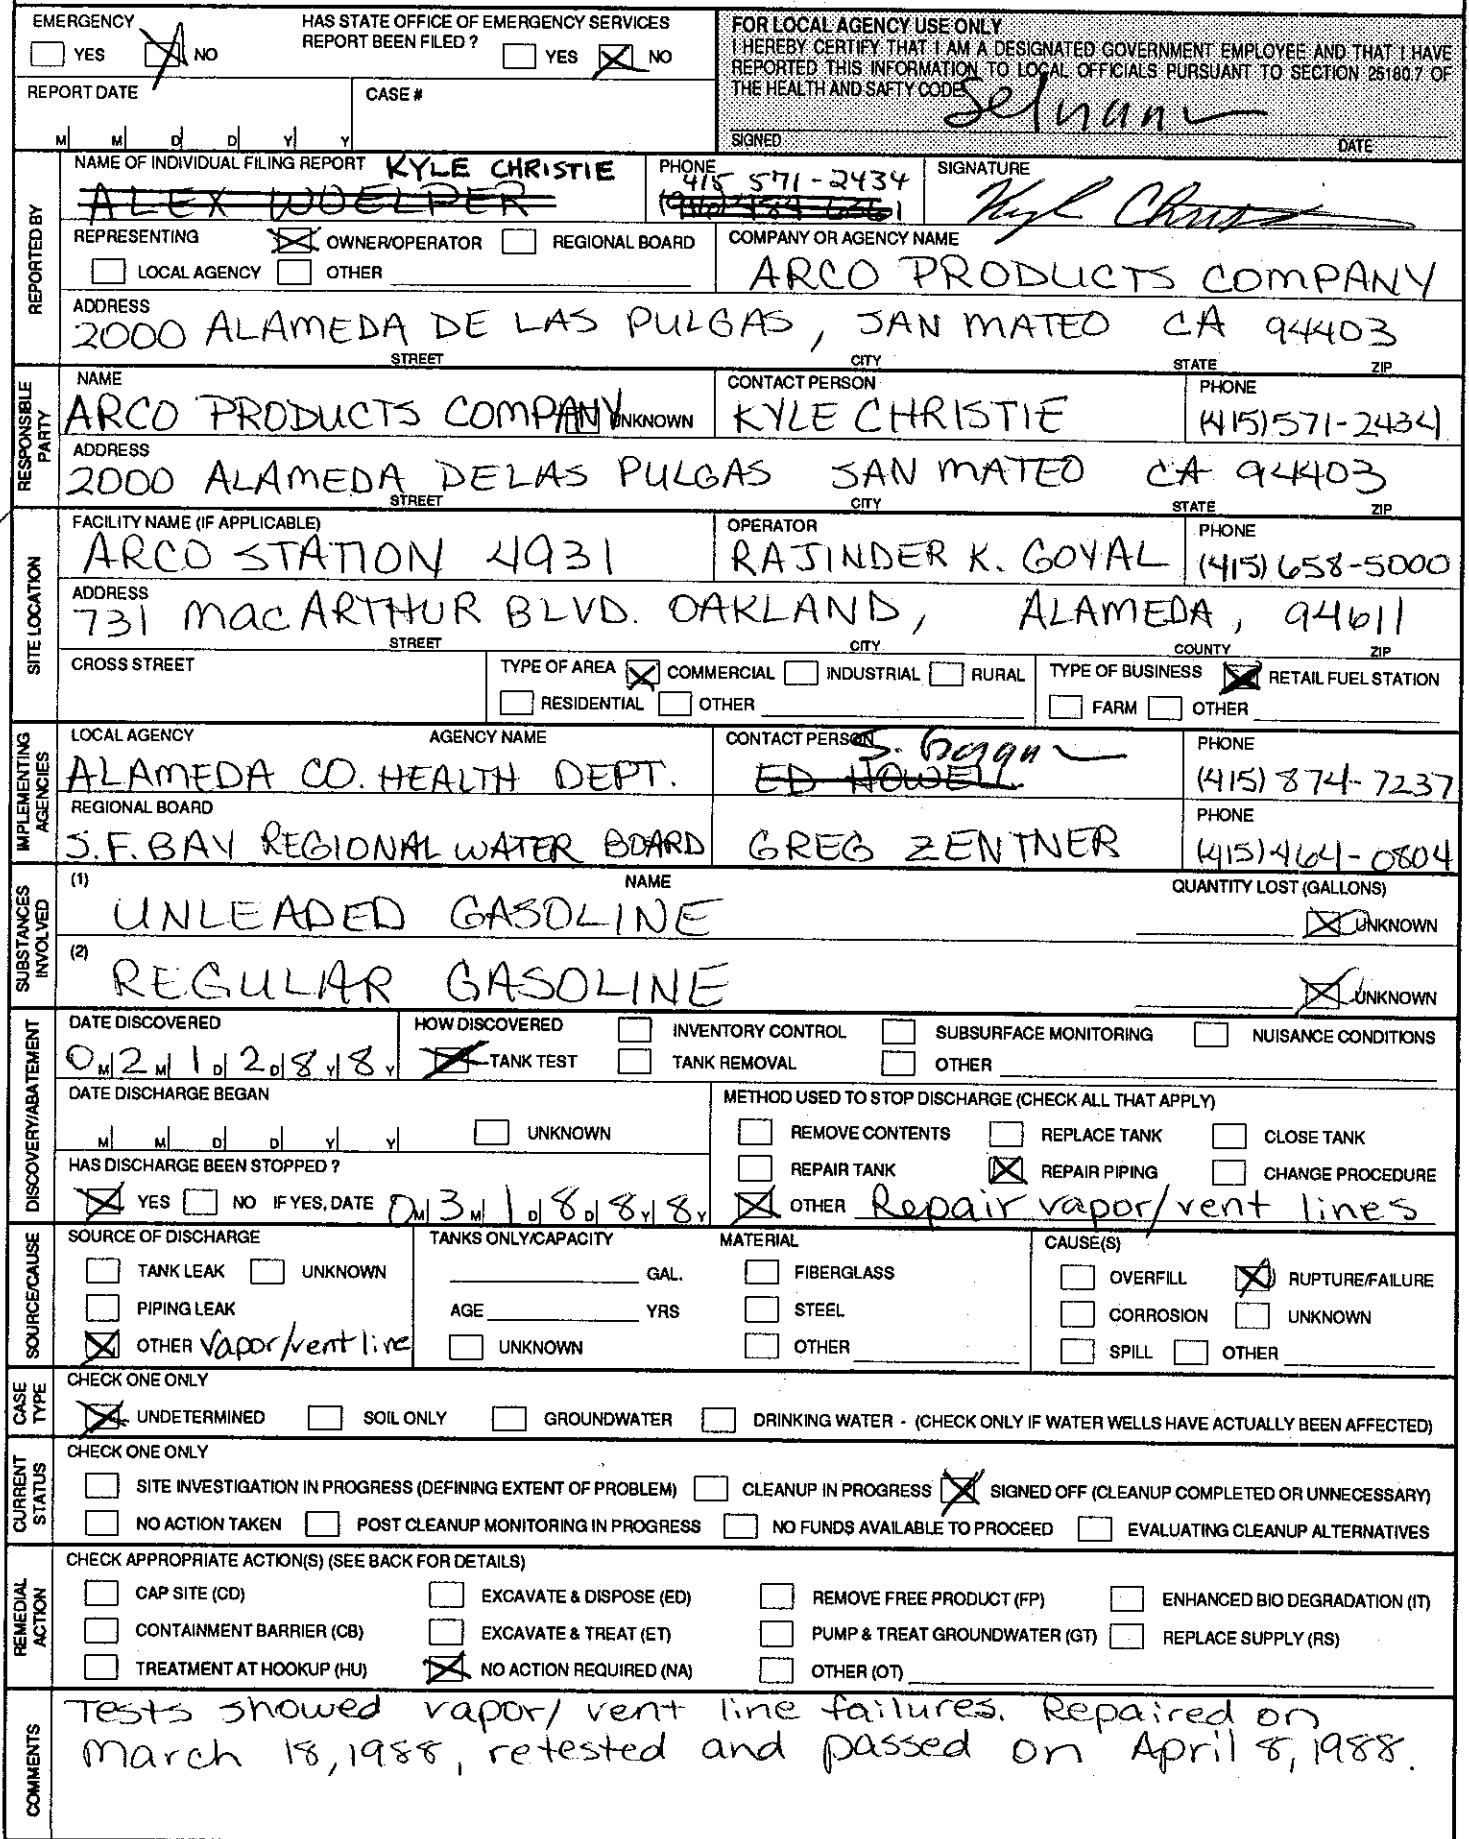 EMERGENCY
YES NO
HAS STATE OFFICE OF EMERGENCY SERVICES
REPORT BEEN FILED ? YES NO
FOR LOCAL AGENCY USE ONLY
I HEREBY CERTIFY THAT I AM A DESIGNATED GOVERNMENT EMPLOYEE AND THAT I HAVE
REPORTED THIS INFORMATION TO LOCAL OFFICIALS PURSUANT TO SECTION 25180.7 OF
THE HEALTH AND SAFTY CODE
SIGNED DATE
REPORT DATE
M M D D Y Y
CASE #
REPORTED BY
NAME OF INDIVIDUAL FILING REPORT KYLE CHRISTIE
ALEX WOELPER
PHONE
415 571-2434
SIGNATURE
Kyle Christie
REPRESENTING OWNER/OPERATOR REGIONAL BOARD
LOCAL AGENCY OTHER
COMPANY OR AGENCY NAME
ARCO PRODUCTS COMPANY
ADDRESS
2000 ALAMEDA DE LAS PULGAS, SAN MATEO CA 94403
STREET CITY STATE ZIP
RESPONSIBLE PARTY
NAME
ARCO PRODUCTS COMPANY UNKNOWN
CONTACT PERSON
KYLE CHRISTIE
PHONE
(415)571-2434
ADDRESS
2000 ALAMEDA DE LAS PULGAS SAN MATEO CA 94403
STREET CITY STATE ZIP
SITE LOCATION
FACILITY NAME (IF APPLICABLE)
ARCO STATION 4931
OPERATOR
RAJINDER K. GOYAL
PHONE
(415) 658-5000
ADDRESS
731 MacARTHUR BLVD. OAKLAND, ALAMEDA, 94611
STREET CITY COUNTY ZIP
CROSS STREET
TYPE OF AREA COMMERCIAL INDUSTRIAL RURAL
RESIDENTIAL OTHER
TYPE OF BUSINESS RETAIL FUEL STATION
FARM OTHER
IMPLEMENTING AGENCIES
LOCAL AGENCY AGENCY NAME
ALAMEDA CO. HEALTH DEPT.
CONTACT PERSON
ED HOWELL
PHONE
(415) 874-7237
REGIONAL BOARD
S.F. BAY REGIONAL WATER BOARD
GREG ZENTNER
PHONE
(415) 464-0804
SUBSTANCES INVOLVED
(1) NAME QUANTITY LOST (GALLONS)
UNLEADED GASOLINE UNKNOWN
(2)
REGULAR GASOLINE UNKNOWN
DISCOVERY/ABATEMENT
DATE DISCOVERED
0 M 2 M 1 D 2 D 8 Y 8 Y
HOW DISCOVERED INVENTORY CONTROL SUBSURFACE MONITORING NUISANCE CONDITIONS
TANK TEST TANK REMOVAL OTHER
DATE DISCHARGE BEGAN
M M D D Y Y UNKNOWN
METHOD USED TO STOP DISCHARGE (CHECK ALL THAT APPLY)
REMOVE CONTENTS REPLACE TANK CLOSE TANK
REPAIR TANK REPAIR PIPING CHANGE PROCEDURE
OTHER Repair vapor/vent lines
HAS DISCHARGE BEEN STOPPED ?
YES NO IF YES, DATE 0 M 3 M 1 D 8 D 8 Y 8 Y
SOURCE/CAUSE
SOURCE OF DISCHARGE
TANK LEAK UNKNOWN
PIPING LEAK
OTHER Vapor/vent line
TANKS ONLY/CAPACITY
GAL.
AGE YRS
UNKNOWN
MATERIAL
FIBERGLASS
STEEL
OTHER
CAUSE(S)
OVERFILL RUPTURE/FAILURE
CORROSION UNKNOWN
SPILL OTHER
CASE TYPE
CHECK ONE ONLY
UNDETERMINED SOIL ONLY GROUNDWATER DRINKING WATER - (CHECK ONLY IF WATER WELLS HAVE ACTUALLY BEEN AFFECTED)
CURRENT STATUS
CHECK ONE ONLY
SITE INVESTIGATION IN PROGRESS (DEFINING EXTENT OF PROBLEM) CLEANUP IN PROGRESS SIGNED OFF (CLEANUP COMPLETED OR UNNECESSARY)
NO ACTION TAKEN POST CLEANUP MONITORING IN PROGRESS NO FUNDS AVAILABLE TO PROCEED EVALUATING CLEANUP ALTERNATIVES
REMEDIAL ACTION
CHECK APPROPRIATE ACTION(S) (SEE BACK FOR DETAILS)
CAP SITE (CD) EXCAVATE & DISPOSE (ED) REMOVE FREE PRODUCT (FP) ENHANCED BIO DEGRADATION (IT)
CONTAINMENT BARRIER (CB) EXCAVATE & TREAT (ET) PUMP & TREAT GROUNDWATER (GT) REPLACE SUPPLY (RS)
TREATMENT AT HOOKUP (HU) NO ACTION REQUIRED (NA) OTHER (OT)
COMMENTS
Tests showed vapor/vent line failures. Repaired on
March 18, 1988, retested and passed on April 8, 1988.